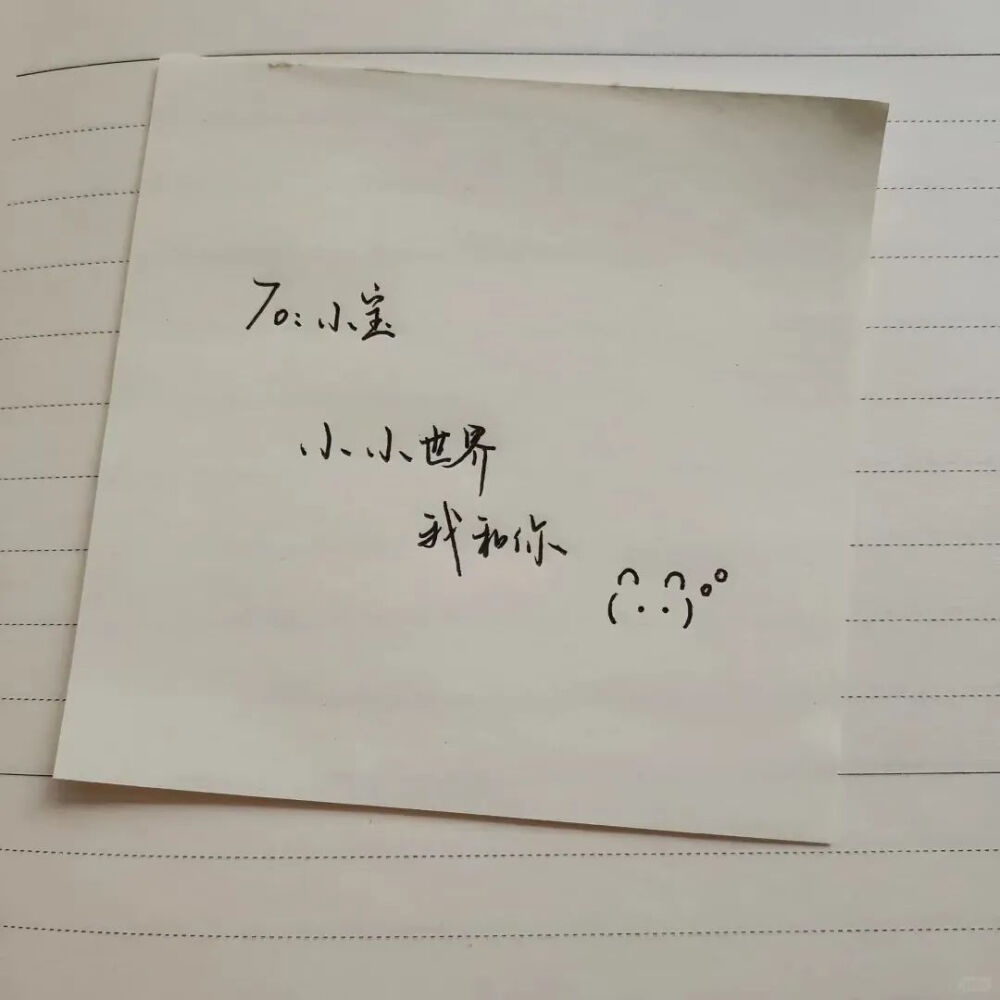 To: 小宝
小小世界
我和你